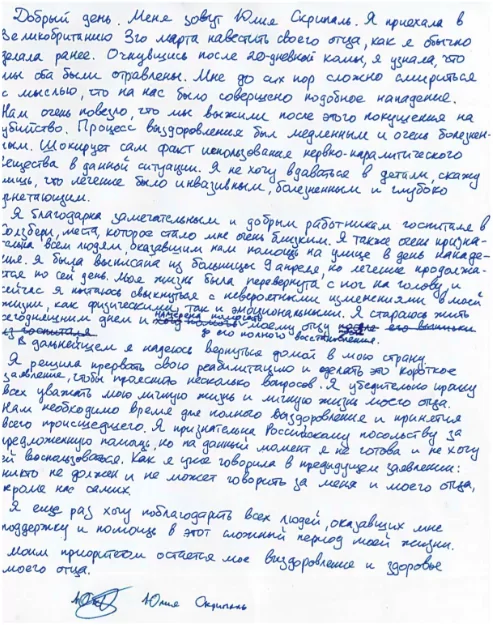 Добрый день. Меня зовут Юлия Скрипаль. Я приехала в
Великобританию 3го марта навестить своего отца, как я обычно
делала ранее. Очнувшись после 20-дневной комы, я узнала, что
мы оба были отравлены. Мне до сих пор сложно смириться
с мыслью, что на нас было совершено подобное нападение.
Нам очень повезло, что мы выжили после этого покушения на
убийство. Процесс выздоровления был медленным и очень болезнен-
ным. Шокирует сам факт использования нервно-паралитического
вещества в данной ситуации. Я не хочу вдаваться в детали, скажу
лишь, что лечение было инвазивным, болезненным и глубоко
угнетающим.
Я благодарна замечательным и добрым работникам госпиталя в
Солзбери, места, которое стало мне очень близким. Я также очень призна-
тельна всем людям, оказавшим нам помощь на улице в день нападе-
ния. Я была выписана из больницы 9 апреля, но лечение продолжа-
ется по сей день. Моя жизнь была перевернута с ног на голову, и
сейчас я пытаюсь свыкнуться с невероятными изменениями в моей
жизни, как физическими, так и эмоциональными. Я стараюсь жить
сегодняшним днем и помогать моему отцу после его выписки
из госпиталя до его полного восстановления.
В дальнейшем я надеюсь вернуться домой в мою страну.
Я решила прервать свою реабилитацию и сделать это короткое
заявление, чтобы прояснить несколько вопросов. Я убедительно прошу
всех уважать мою личную жизнь и личную жизнь моего отца.
Нам необходимо время для полного выздоровления и принятия
всего происшедшего. Я признательна Российскому посольству за
предложенную помощь, но на данный момент я не готова и не хочу
ей воспользоваться. Как я уже говорила в предыдущем заявлении:
никто не должен и не может говорить за меня и моего отца,
кроме нас самих.
Я еще раз хочу поблагодарить всех людей, оказавших мне
поддержку и помощь в этот сложный период моей жизни.
Моим приоритетом остается мое выздоровление и здоровье
моего отца.
Юлия Скрипаль